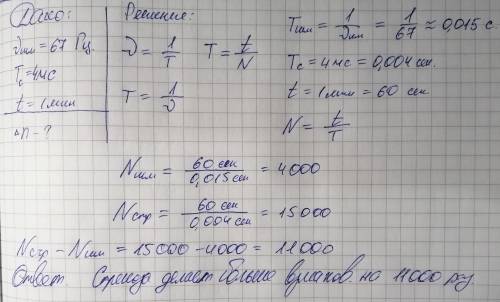 Дано:
ν шм = 67 Гц
Tс = 4 мс
t = 1 мин
Δn - ?
Решение:
ν = 1/T   T = t/N
T = 1/ν
Tшм = 1/νшм = 1/67 ≈ 0,015 с.
Tс = 4 мс = 0,004 сек.
t = 1 мин = 60 сек
N = t/T
Nшм = 60 сек/0,015 сек = 4000
Nстр = 60 сек/0,004 сек = 15000
Nстр - Nшм = 15000 - 4000 = 11000
Ответ Стрекоза делает больше взмахов на 11000 раз